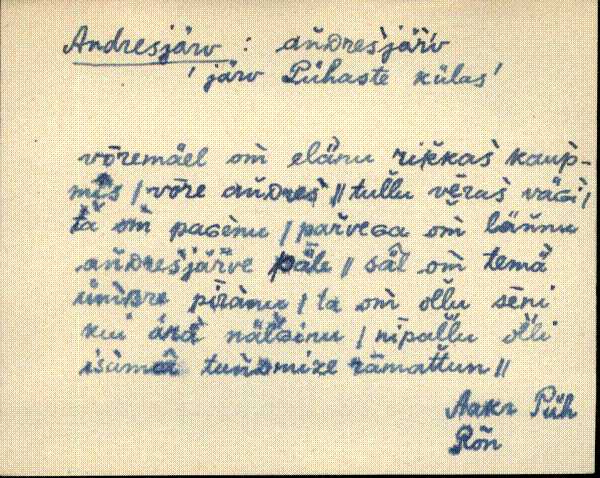 Andresjärv : añᴅres̀järv
' järv Pühaste külas '
võremäel om̀ elänu rikkas̀ kaup-
mìs / võre añᴅres̀ // tullu vēras̀ vägi /
tä om̀ paɢenu / parveɢa om̀ lännu
añᴅres̀järve päle // säl om temä
ümBre pīranu / ta om ollu sēni
kui ärä nälɢinu / nipallu olli
isämā tuñᴅmize rāmattun //
Aakr Püh
Rõn